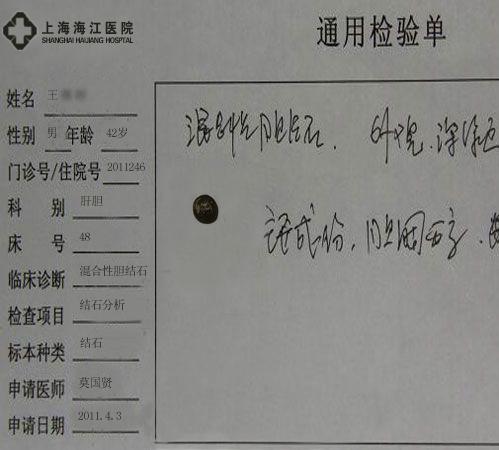 上海海江医院
SHANGHAI HAIJIANG HOSPITAL
通用检验单
姓名 王
性别 男 年龄 42岁
门诊号/住院号 2011246
科 别 肝胆
床 号 48
临床诊断 混合性胆结石
检查项目 结石分析
标本种类 结石
申请医师 莫国贤
申请日期 2011.4.3
混合性胆结石. 外观,深绿
成份,胆固